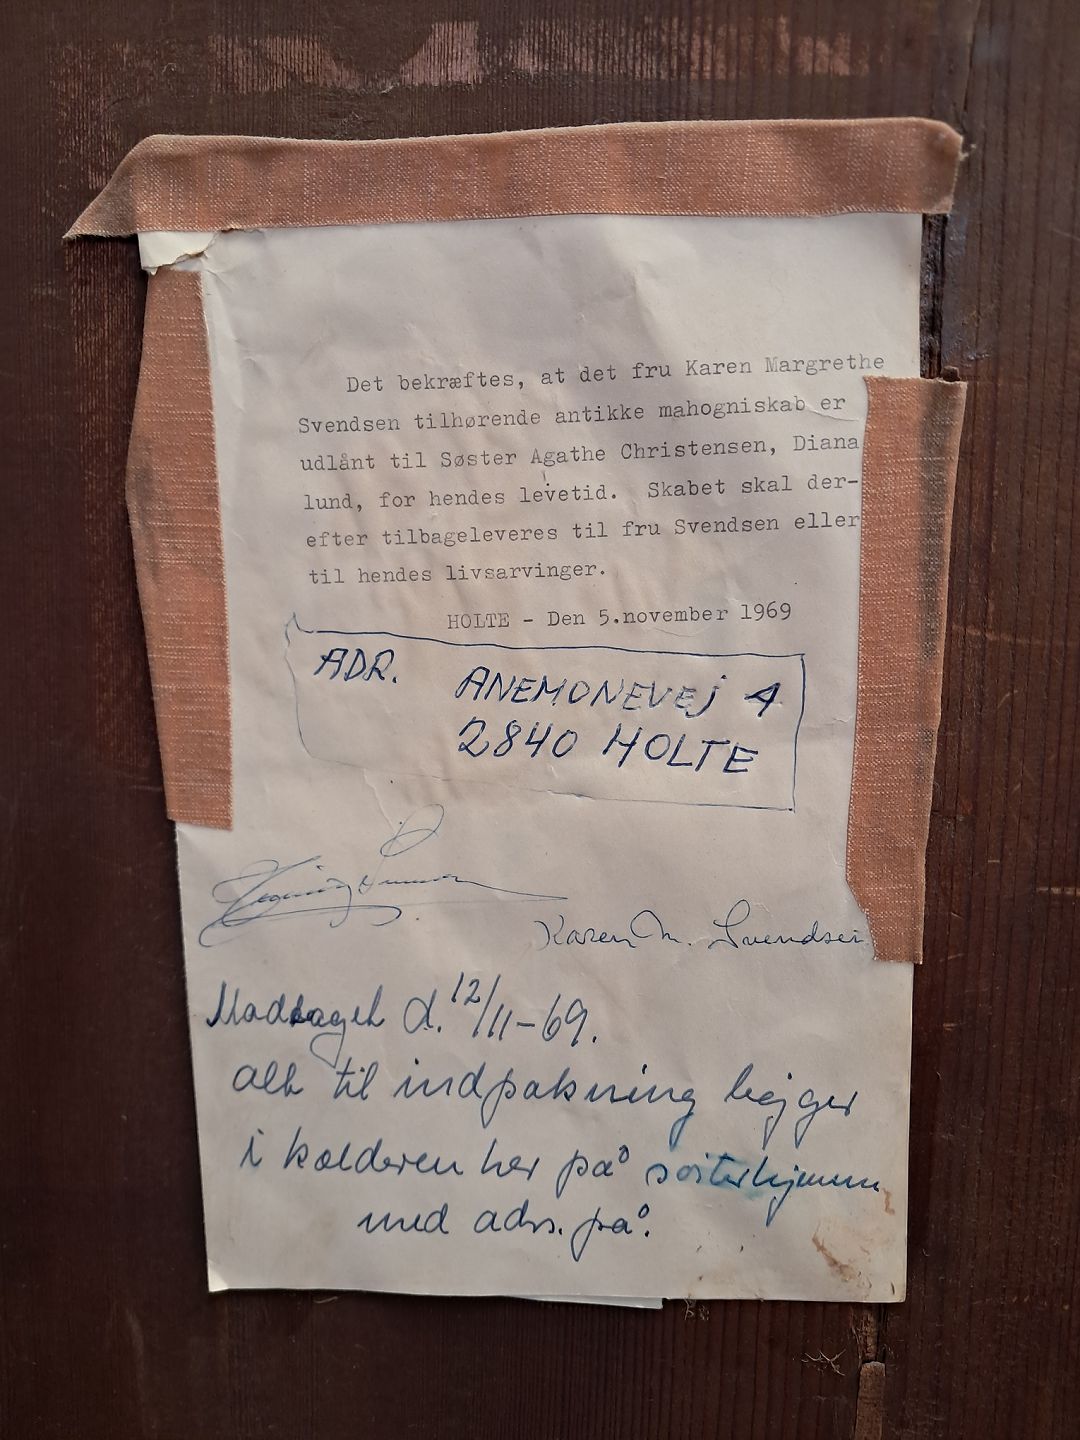 Det bekræftes, at det fru Karen Margrethe
Svendsen tilhørende antikke mahogniskab er
udlånt til Søster Agathe Christensen, Diana
lund, for hendes levetid. Skabet skal der-
efter tilbageleveres til fru Svendsen eller
til hendes livsarvinger.
HOLTE - Den 5.november 1969
ADR. ANEMONEVEJ 4
2840 HOLTE
Karen M. Svendsen
Modtaget d. 12/11-69.
alt til indpakning ligger
i kælderen her på søsterhjemm
med adrs. på.